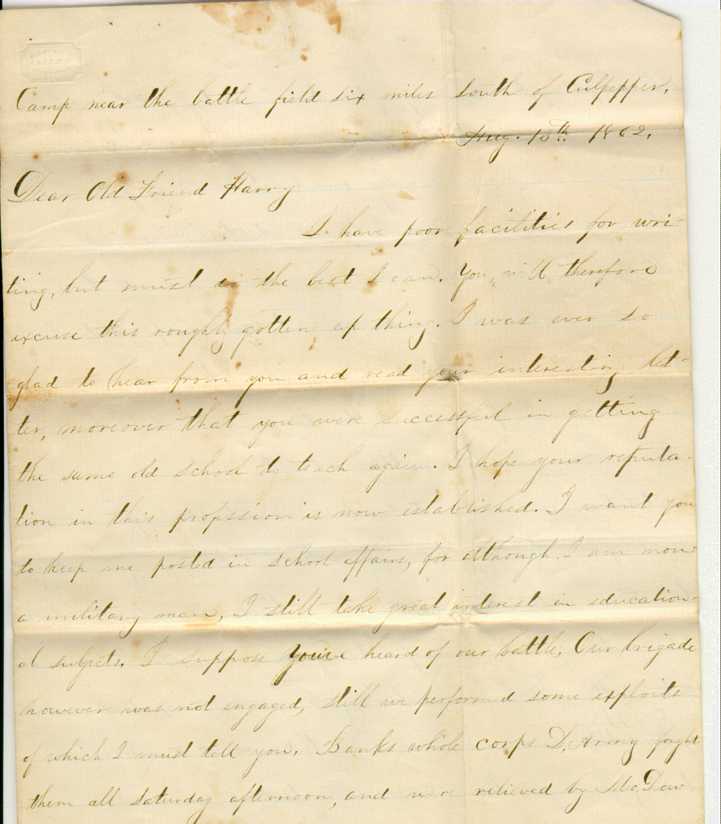 Camp near the battle field six miles South of Culpepper,
Aug. 13th 1862.
Dear Old Friend Harry
I have poor facilities for wri-
ting, but must do the best I can. You will therefore
excuse this roughly gotten up thing. I was ever so
glad to hear from you and read your interesting let-
ter, moreover that you were successful in getting
the same old school to teach again. I hope your reputa-
tion in this profession is now established. I want you
to keep me posted in school affairs, for although I am now
a military man, I still take great interest in education-
al subjects. I suppose you've heard of our battle. Our brigade
however was not engaged, still we performed some exploits
of which I must tell you. Banks whole corps D, Army fought
them all Saturday afternoon, and were relieved by McDow-